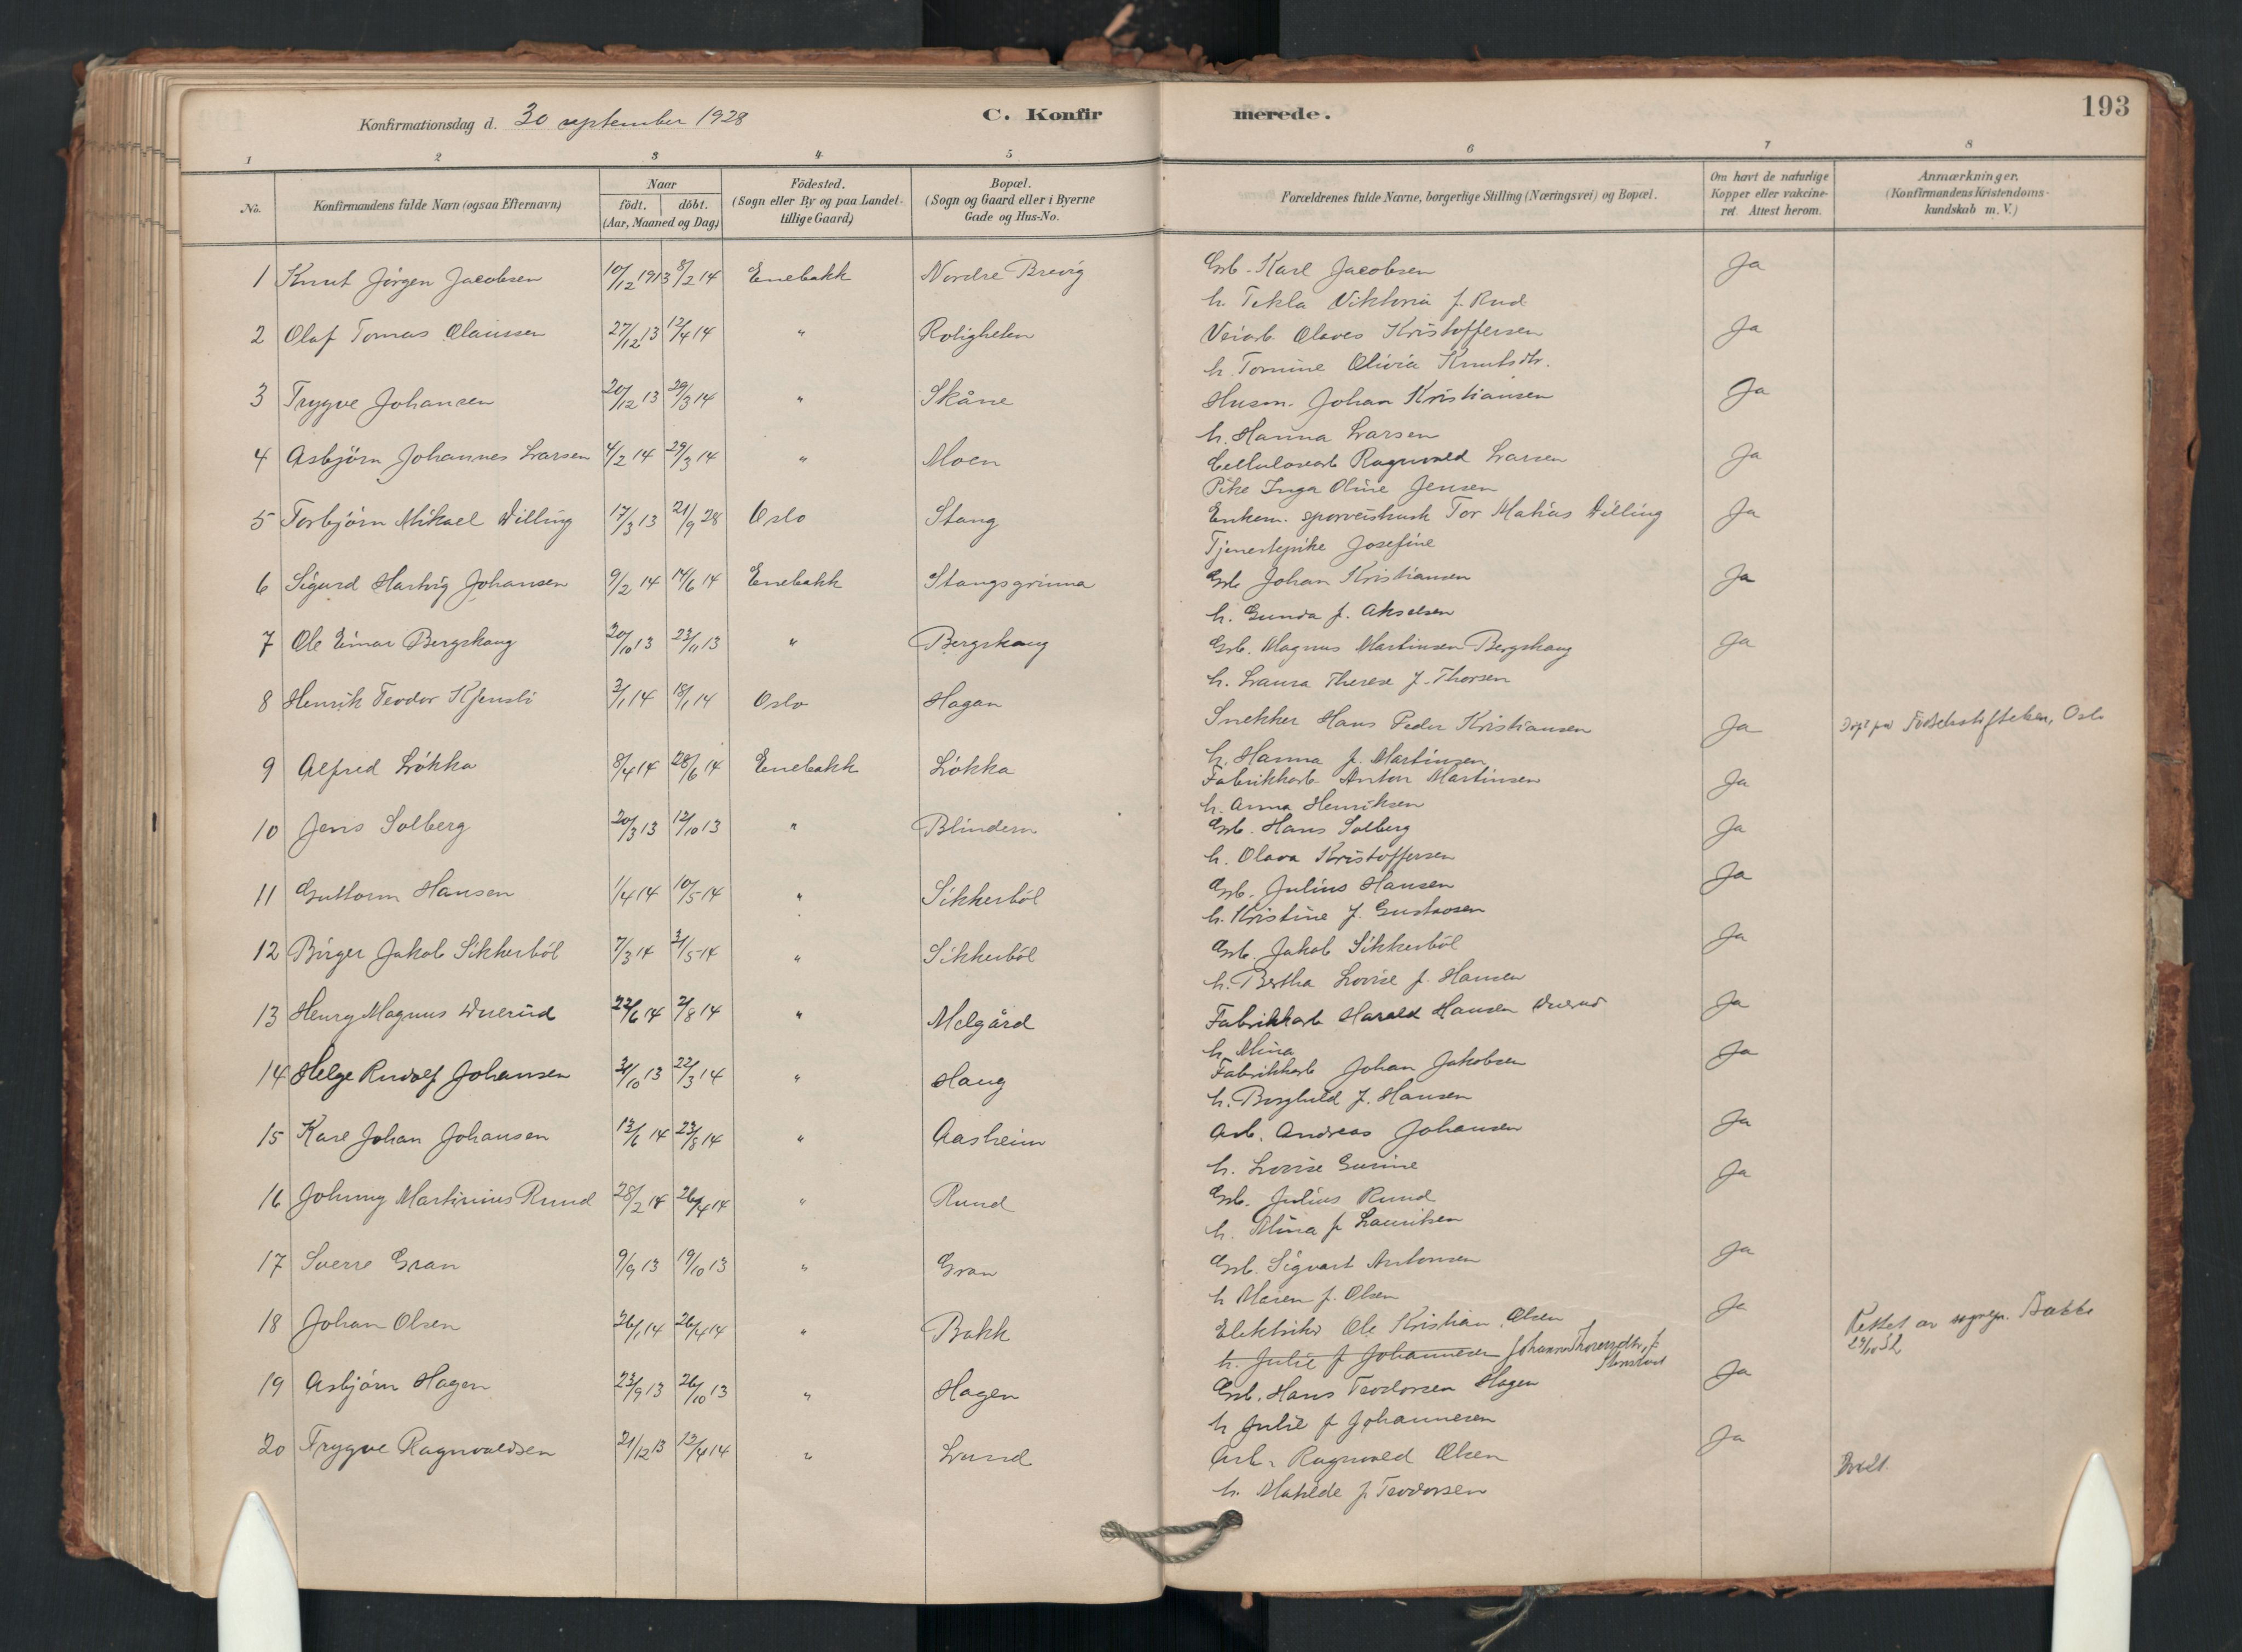 Konfirmationsdag d. 30 september 1928
C. Konfirmerede.
193
1 2 3 4 5 6 7 8
No.
Konfirmandens fulde Navn (ogsaa Efternavn)
Naar
födt. döbt.
(Aar, Maaned og Dag)
Födested.
(Sogn eller By og paa Landet tillige Gaard)
Bopæl.
(Sogn og Gaard eller i Byerne
Gade og Hus-No.
Forældrenes fulde Navne, borgerlige Stilling (Næringsvei) og Bopæl.
Om havt de naturlige
Kopper eller vakcineret. Attest herom.
Anmærkninger.
(Konfirmandens Kristendomskundskab m. V.)
1 Knut Jörgen Jacobsen 10/12 1913 8/2 14 Enebakk Nordre Brevig Grb. Karl Jacobsen Ja
h. Tekla Viktoria f. Rud
2 Olaf Tomas Olaussen 27/12 13 12/4 14 " Roligheten Veiarb. Olaves Kristoffersen Ja
h. Tomine Olivia Knutsdtr.
3 Trygve Johansen 20/12 13 29/3 14 " Skåne Husm. Johan Kristiansen Ja
h. Hanna Larsen
4 Asbjörn Johannes Larsen 4/2 14 29/3 14 " Moen Cellulosearb Ragnvald Larsen Ja
Pike Inga Oline Jensen
5 Torbjörn Mikael Dilling 17/3 13 21/9 28 Oslo Stang Enkem. sporveiskusk Tor Matias Dilling Ja
Tjenestepike Josefine
6 Sigurd Hartvig Johansen 9/2 14 14/6 14 Enebakk Stangsgrinna Grb Johan Kristiansen Ja
h. Gunda f. Akselsen
7 Ole Einar Bergskaug 20/10 13 23/11 13 " Bergskaug Grb. Magnus Martinsen Bergskaug Ja
h. Laura Therese f. Thorsen
8 Henrik Teodor Kjensli 3/1 14 18/1 14 Oslo Hagan Snekker Hans Peder Kristiansen Ja Döpt på Fødselsstiftelsen, Oslo
h. Hanna f. Martinsen
9 Alfred Lökka 8/4 14 28/6 14 Enebakk Lökka Fabrikkarb Anton Martinsen Ja
h. Anna Henriksen
10 Jens Solberg 20/3 13 12/10 13 " Blindern Grb. Hans Solberg Ja
h. Olava Kristoffersen
11 Guttorm Hansen 1/4 14 10/5 14 " Sikkerböl Grb. Julius Hansen Ja
h. Kristine f. Gustavsen
12 Birger Jakob Sikkerböl 7/3 14 31/5 14 " Sikkerböl Grb. Jakob Sikkerböl Ja
h. Bertha Lovise f. Hansen
13 Henry Magnus Duerud 22/6 14 2/8 14 " Melgård Fabrikkarb Harald Hansen Duerud Ja
h. Mina
14 Helge Rudolf Johansen 31/10 13 22/3 14 " Haug Fabrikkarb Johan Jakobsen Ja
h. Borghild f. Hansen
15 Kare Johan Johansen 13/6 14 23/8 14 " Aasheim Arb. Andreas Johansen Ja
h. Lovise Gurine
16 Johnny Martinius Rund 28/2 14 26/4 14 " Rund Grb. Julius Rund Ja
h. Mina f Lauritsen
17 Sverre Gran 9/9 13 19/10 13 " Gran Grb. Sigvart Antonsen Ja
h Maren f. Olsen
18 Johan Olsen 26/1 14 26/4 14 " Bakk Elektriker Ole Kristian Olsen Ja Rettet av sognepr. Bakke
h. Julie f Johannesen Johanne Thorendtr. f 29/10 52
Stenslund
19 Asbjörn Hagen 23/9 13 26/10 13 " Hagen Grb. Hans Teodorsen Hagen Ja
h Julie f Johannesen
20 Trygve Ragnvaldsen 21/12 13 12/4 14 " Lund Arb. Ragnvald Olsen Ja
h. Matilde f Teodorsen